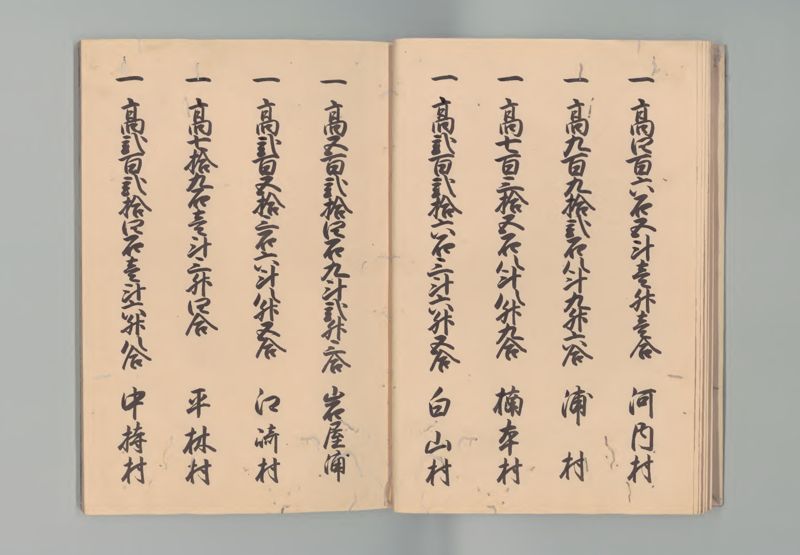 一 高四百六石五斗壱升壱合 河内村
一 高九百九拾弐石八斗九升六合 浦村
一 高七百三拾五石八斗八升九合 楠本村
一 高弐百弐拾六石三斗六升五合 白山村
一 高五百弐拾四石九斗弐升三合 岩屋浦
一 高弐百五拾三石六斗八升五合 江崎村
一 高七拾九石壱斗三升四合 平林村
一 高弐百弐拾四石壱斗六升八合 中持村